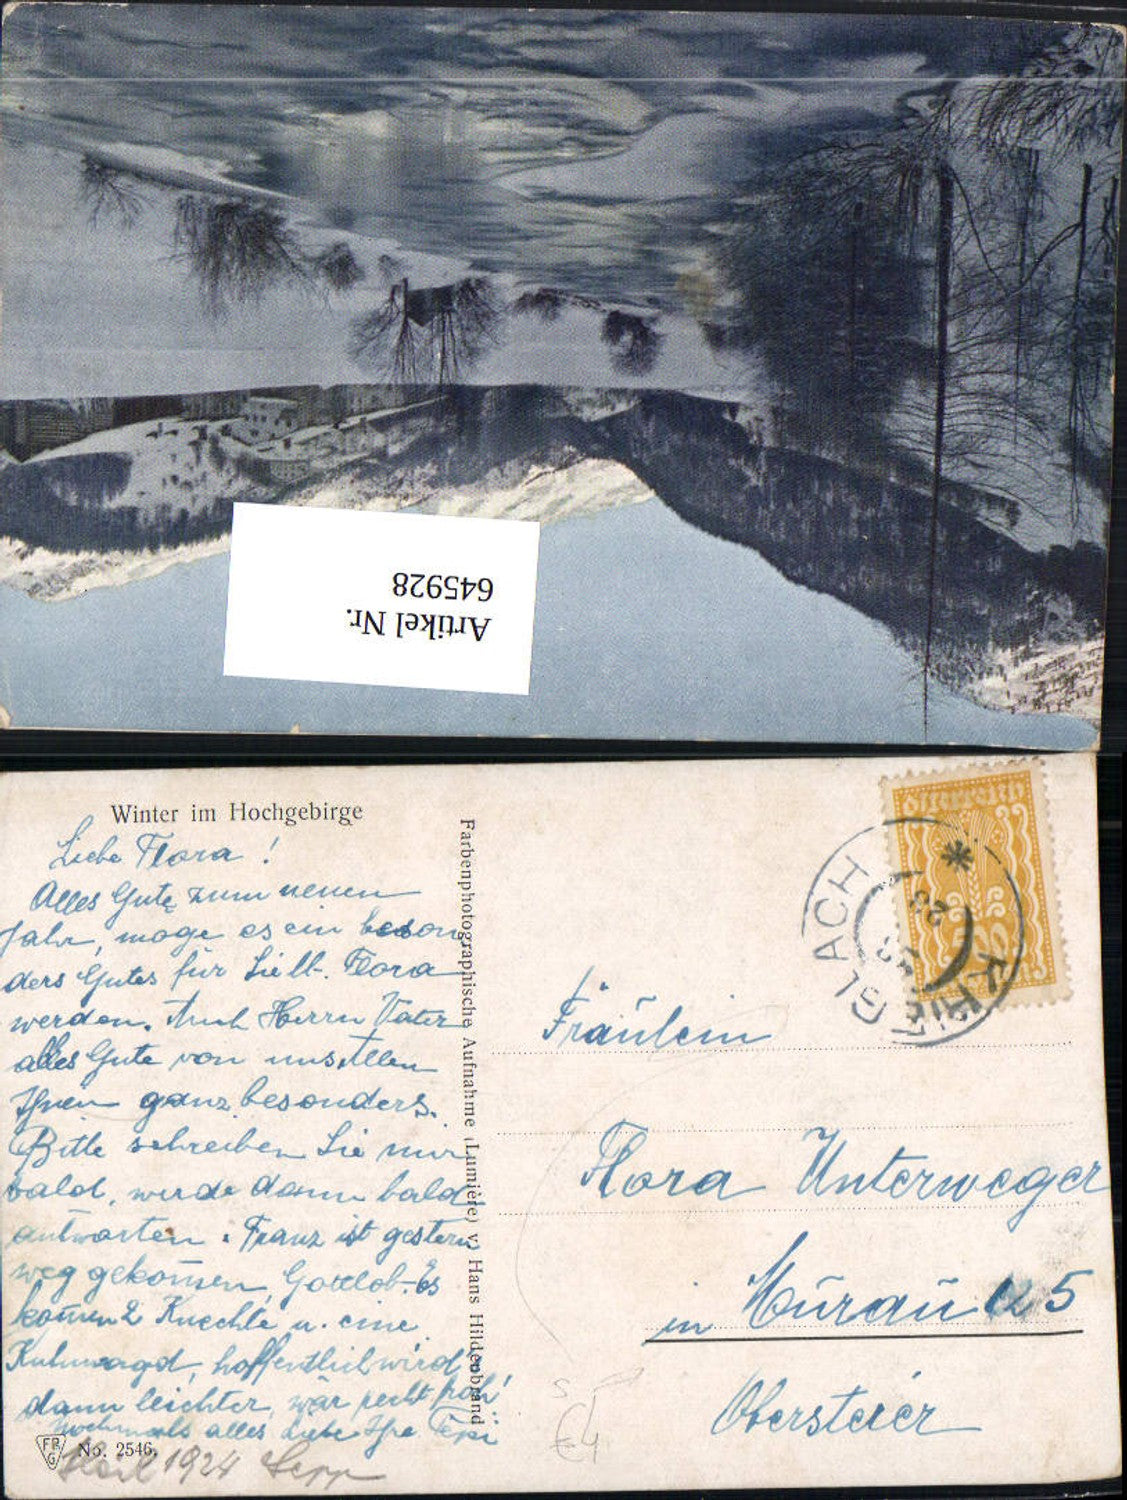 Artikel Nr.
645928
Winter im Hochgebirge
Liebe Flora !
Alles Gute zum neuen
Jahr, möge es ein beson
ders Gutes für Sie lb. Flora
werden. Auch Herrn Vater
alles Gute von uns Allen
Ihnen ganz besonders.
Bitte schreiben Sie mir
bald, werde dann bald
antworten. Franz ist gestern
weg gekom̄en, Gottlob. Es
kom̄en 2 Knechte u. eine
Kuhmagd, hoffentlich wird
dann leichter, wär recht froh!
nochmals alles Liebe Ihre Pepi
1924 Sepp
FPG
No. 2546.
Farbenphotographische Aufnahme (Lumière) v. Hans Hildenbrand
österreich
500
KRIEGLACH
Fräulein
Flora Unterweger
in Murau 125
Obersteier
€4